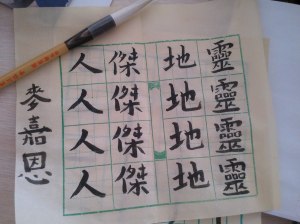 靈靈靈靈
地地地地
傑傑傑傑
人人人人
麥嘉恩